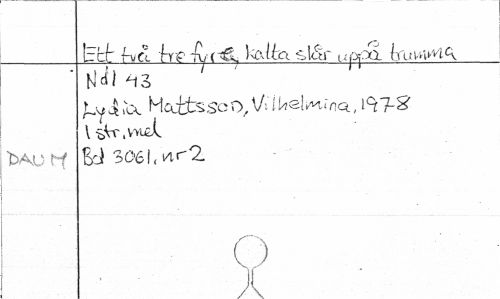 Ett två tre fyra, katta slår uppå trumma
Ndl 43
Lydia Mattsson, Vilhelmina, 1978
1 str, mel
DAUM Bd 3061, nr 2